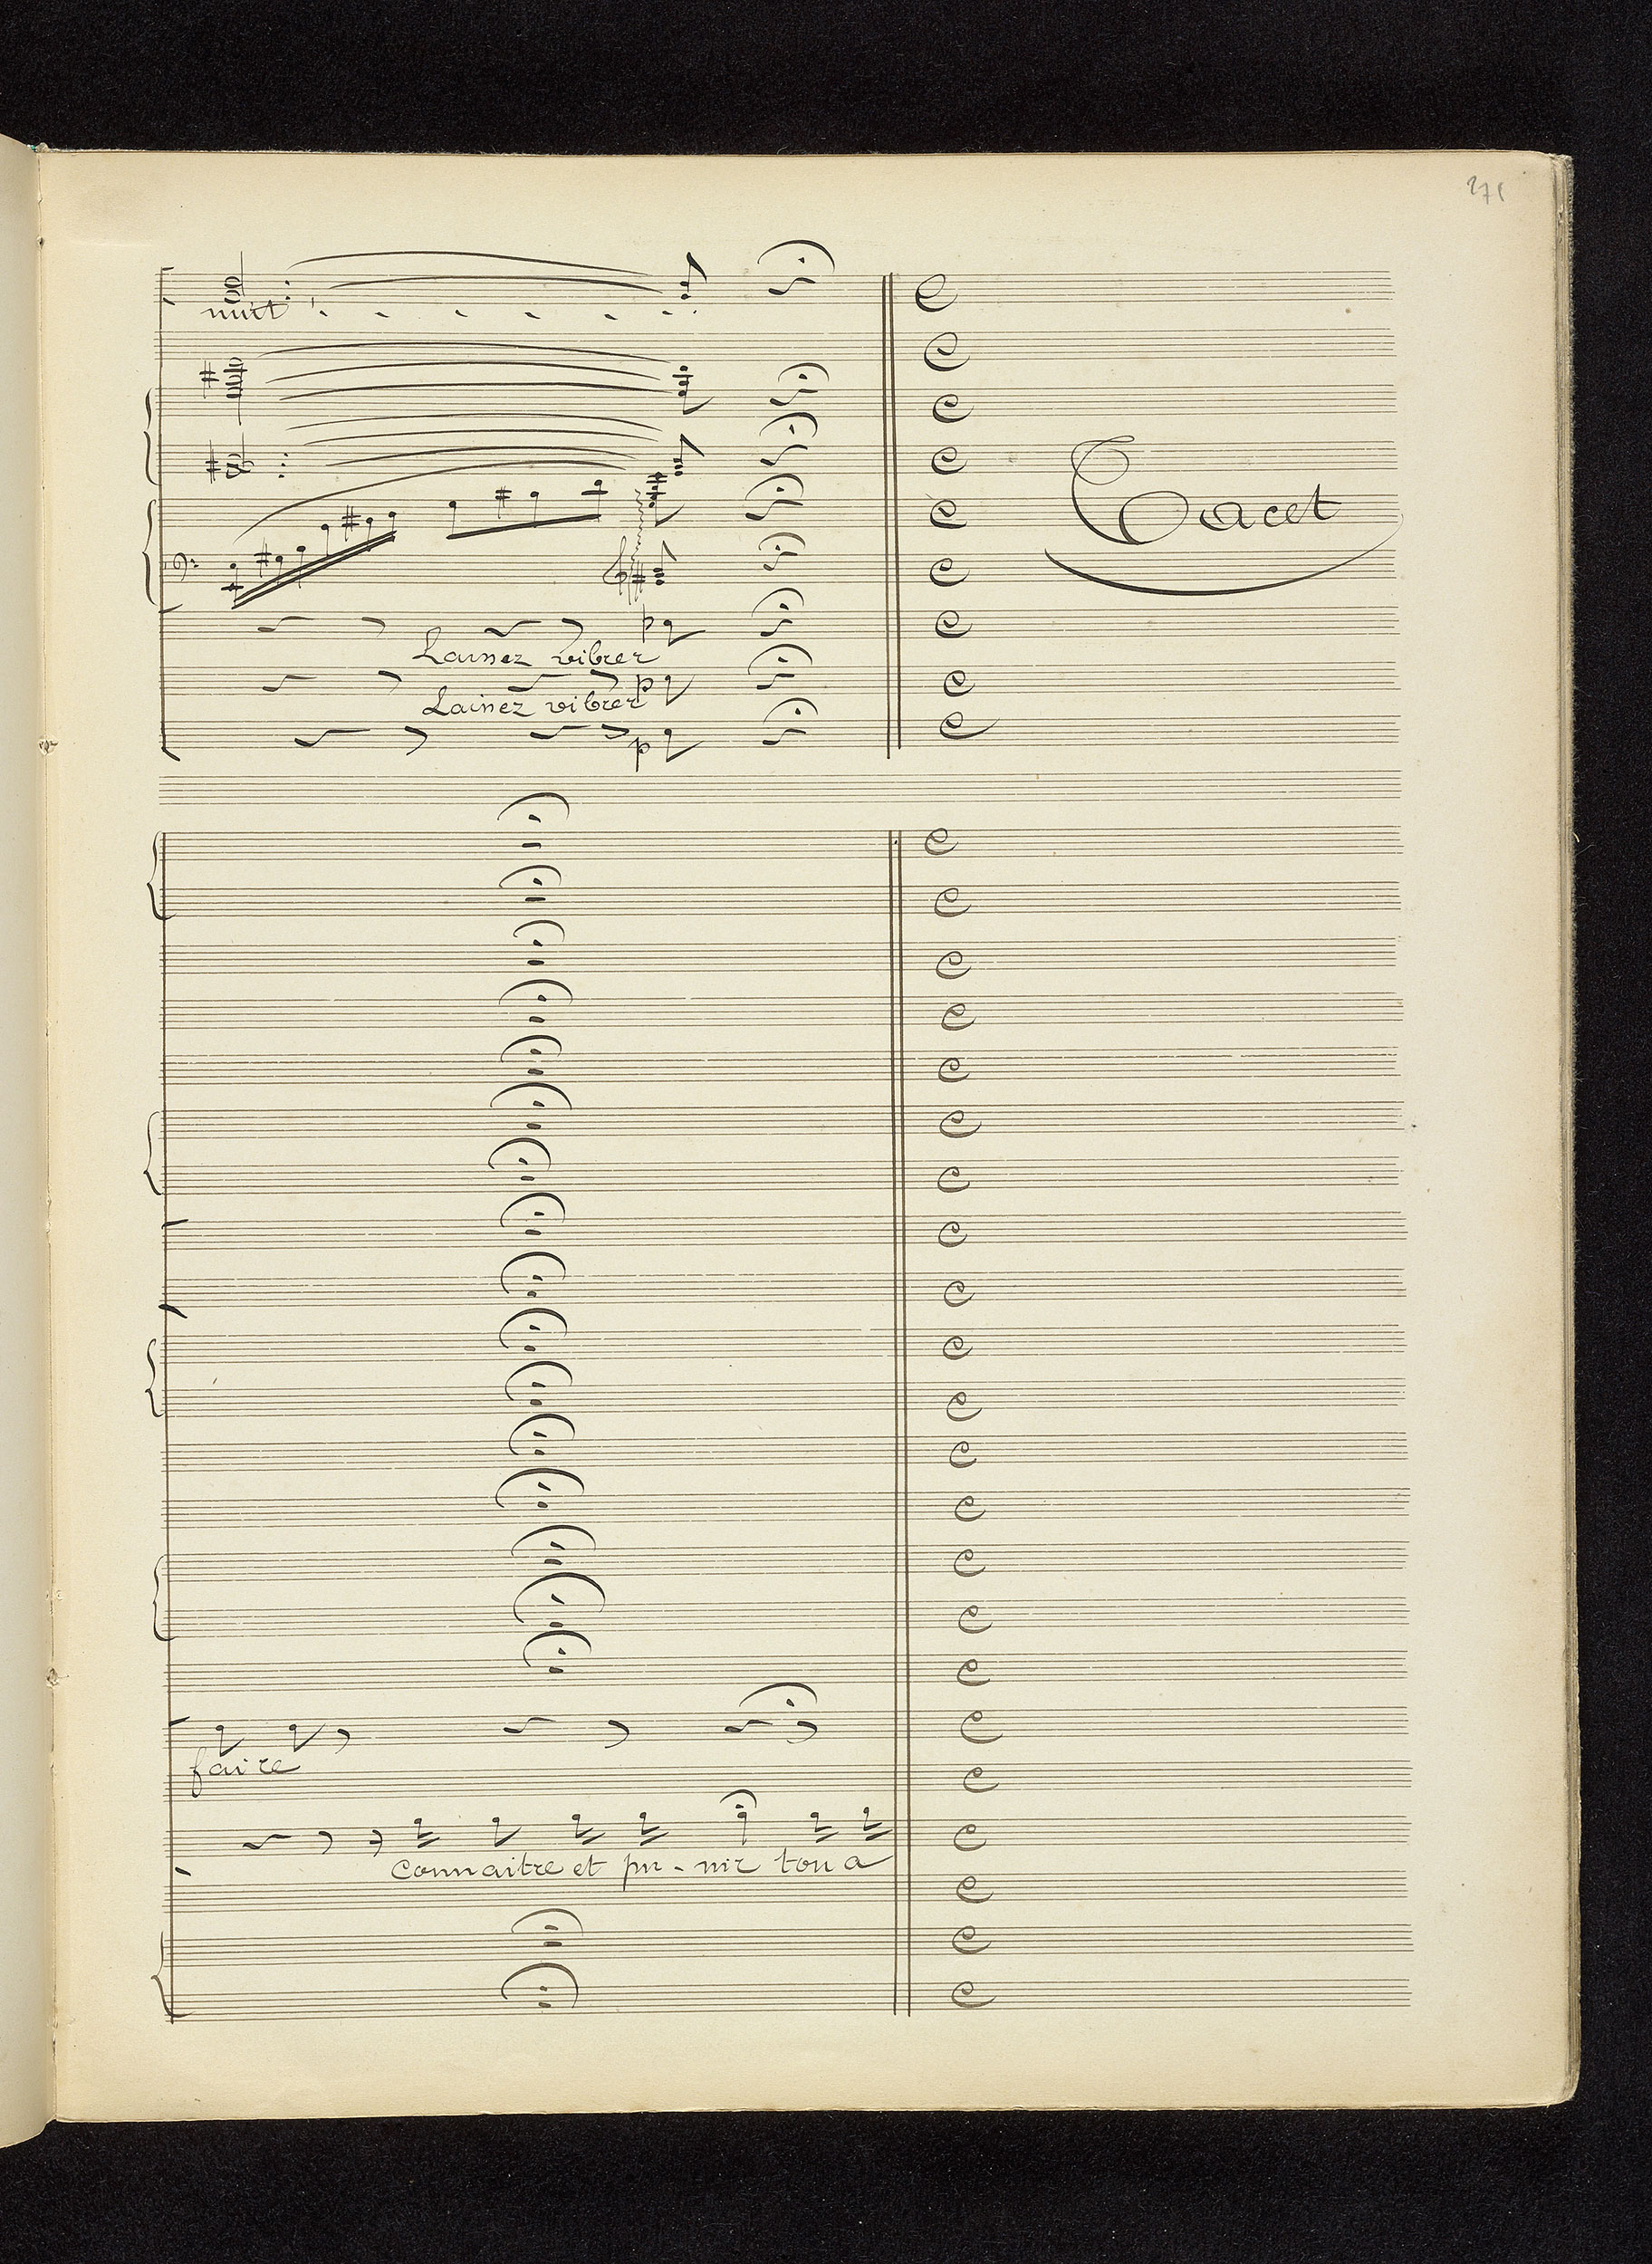 271
nuit
Tacet
Laissez vibrer
Laissez vibrer
faire
connaitre et pu - nir ton a